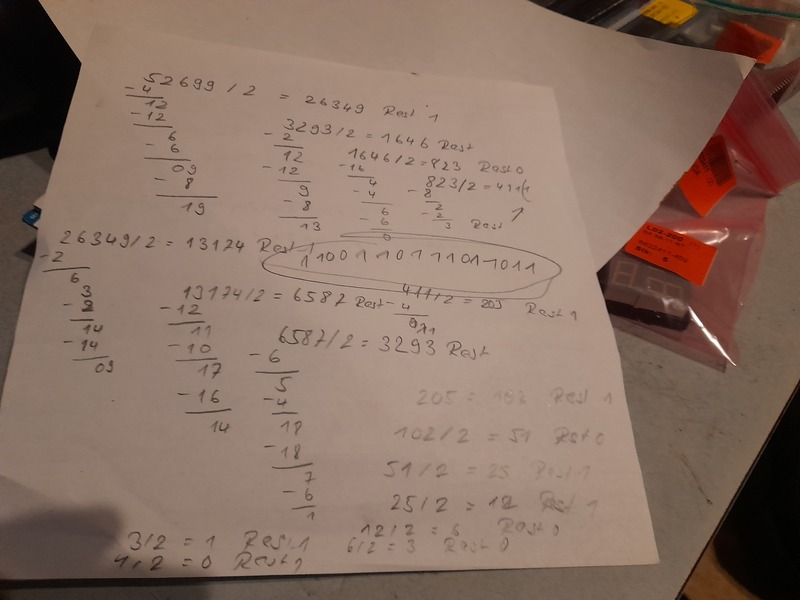 52699 / 2 = 26349 Rest 1
- 4
12
- 12
6
- 6
09
- 8
19
3293/2 = 1646 Rest
- 2
12
- 12
9
- 8
13
1646/2 = 823 Rest 0
- 16
4
- 4
6
- 6
0
823/2 = 411 1
- 8
2
- 2
3 Rest 1
26349/2 = 13174 Rest 1
- 2
6
3
- 2
14
- 14
09
1100110111011011
13174/2 = 6587 Rest
- 12
11
- 10
17
- 16
14
411/2 = 205 Rest 1
- 4
6587/2 = 3293 Rest
- 6
5
- 4
18
- 18
7
- 6
1
205 = 103 Rest 1
102/2 = 51 Rest 0
51/2 = 25 Rest 1
25/2 = 12 Rest 1
12/2 = 6 Rest 0
6/2 = 3 Rest 0
3/2 = 1 Rest 1
1/2 = 0 Rest 1